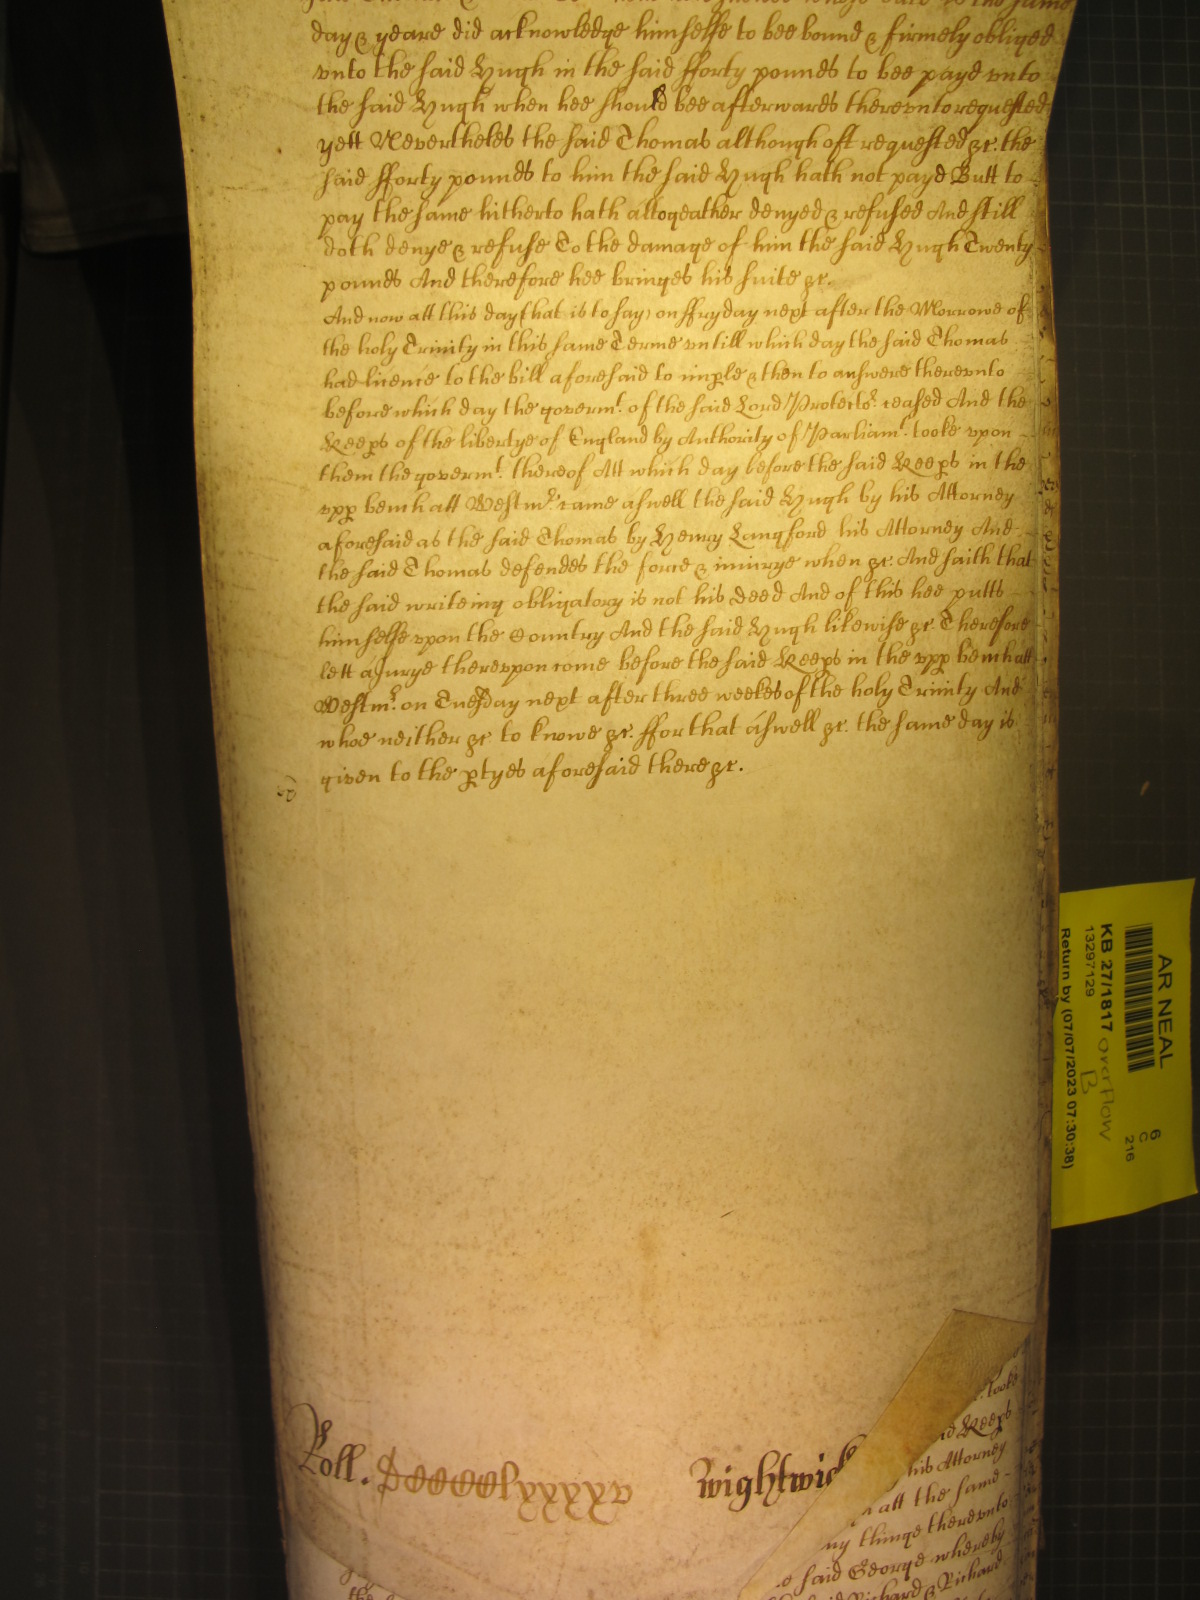 day & yeare did acknowledge himselfe to bee bound & firmely obliged
vnto the said Hugh in the said fforty pounds to bee payd vnto
the said Hugh when hee should bee afterwards therevnto requested
yett Nevertheles the said Thomas although oft requested &c. the
said fforty pounds to him the said Hugh hath not payd Butt to
pay the same hitherto hath altogeather denyed & refused And still
doth denye & refuse To the damage of him the said Hugh Twenty
pounds And therefore hee bringes his suite &c.
And now att this day (that is to say) on ffryday next after the Morrowe of
the holy Trinity in this same Terme vntill which day the said Thomas
had licence to the bill aforesaid to imple & then to answere therevnto
before which day the governmt. of the said Lord Protector. ceased And the
Keeps of the libertye of England by Authority of Parliamt. tooke vpon
them the govermt. thereof Att which day before the said Keeps in the
vpp bench att Westmr. came aswell the said Hugh by his Attorney
aforesaid as the said Thomas by Henry Langford his Attorney And
the said Thomas defendes the force & iniurye when &c. And saith that
the said writeing obligatory is not his deed And of this hee putts
himselfe vpon the Country And the said Hugh likewise &c. Therefore
lett a Jurye therevpon come before the said Keeps in the vpp bench att
Westmr. on Tuesday next after three weekes of the holy Trinity And
whoe neither &c. to knowe &c. ffor that aswell &c. the same day is
given to the ptyes aforesaid there &c.
AR NEAL
KB 27/1817 overflow
B
13297129
Return by (07/07/2023 07:30:38)
6
C
216
Roll. Wightwick
tooke
Keeps
his Attorney
att the same
thinge therevnto
said George whereby
said Richard & Richard